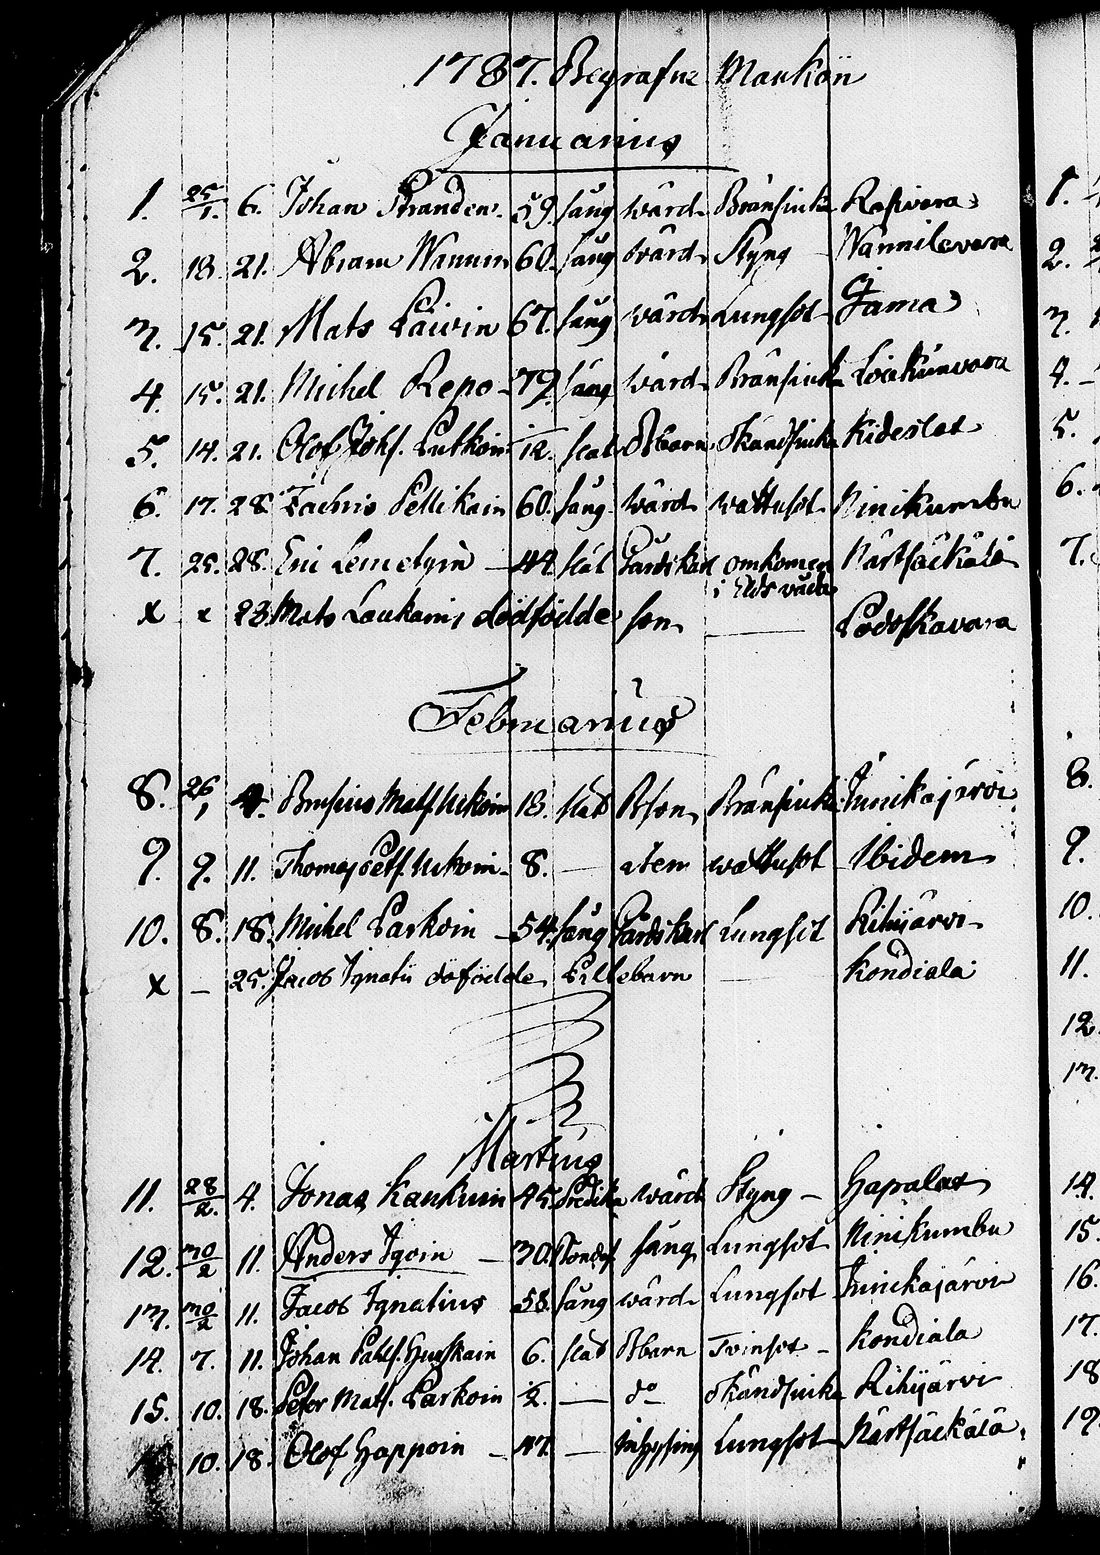 1787. Begrafne Mankön
Januarius
1. 25/1. 6. Johan Stranden. 59. säng wärd Bränsiuka Rasivara
2. 18. 21. Abram Wänn 60. säng wärd Styng Wännilevara
3. 15. 21. Mats Päivin 67. säng wärd Lungsot Jama
4. 15. 21. Michel Repo 79. säng wärd Bränsiuk
5. 14. 21. Olof Johs. Putkoin 12. slat Bbarn okändsiuka Kideslat
6. 17. 28. Zachris Pellikain 60. säng wärd wattusot Ninikumbu
7. 25. 28. Eric Lemetyin 44. slät Gårdskarl omkomen Närtsäkälä
i Elds våda
x 23. Mats Laukains dödfödde son Potoskavara
Februarius
8. 26/1 4. Mats. Uckoin 13. slät Bson Bränsiuka Juuikajärvi
9. 9. 11. Thomas Pett. Uckoin 8. — item wattusot Ibidem
10. 8. 18. Michel Parkoin 54. säng Gårdskarl Lungsot Rihijärvi
x – 25. Jacob Ignatii döfödde Pillebarn Kondiala
Martius
11. 28/2. 4. Jonas Kaukuin 45. Predik wärd Styng Hapalax
12. 30/2 11. Anders Igoin 30. säng Lungsot Ninikumbu
13. 30/2 11. Jacob Ignatius 58. säng wärd Lungsot Juuikajärvi
14. 7. 11. Johan Påls. Huskain 6. slät Bbarn Tvinsot Kondiala
15. 10. 18. Petter Mats. Parkoin 1/2. — do okändsiuka Rihijärvi
10. 18. Olof Happoin 47. — inhysing Lungsot Närtsäkälä
1.
2.
3.
4.
5.
6.
7.
8.
9.
10.
11.
12.
13.
14.
15.
16.
17.
18
19.